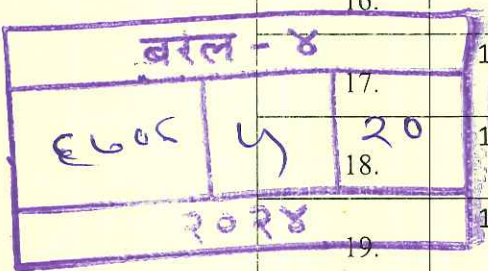 16.
बरल - ४
1
17.
६७०८ ५ २०
1
18.
२०२४
1
19.